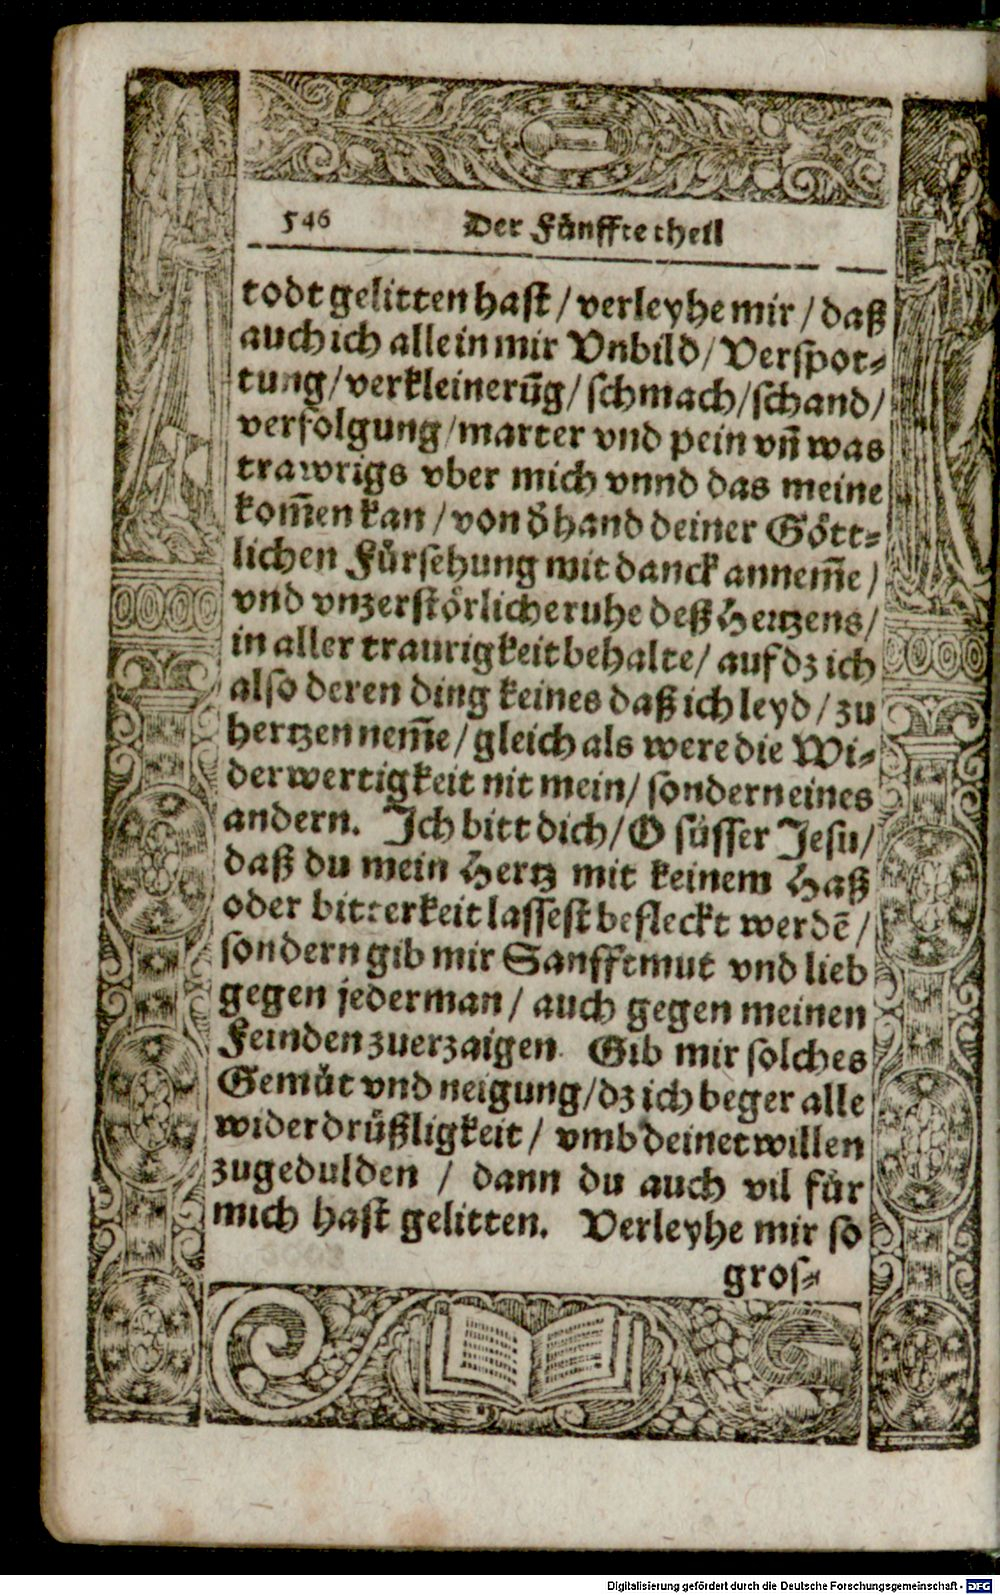 546 Der Fünffte theil
todt gelitten hast / verleyhe mir / daß
auch ich allein mir Vnbild / Verspot⸗
tung / verkleinerūg / schmach / schand /
verfolgung / marter vnd pein vn̄ was
trawrigs vber mich vnnd das meine
kom̄en kan / von d̓ hand deiner Gött⸗
lichen Fürsehung mit danck annem̄e /
vnd vnzerstörliche ruhe deß Hertzens /
in aller traurigkeit behalte / auf dz ich
also deren ding keines daß ich leyd / zu
hertzen nem̄e / gleich als were die Wi⸗
derwertigkeit nit mein / sondern eines
andern. Ich bitt dich / O süsser Jesu /
daß du mein Hertz mit keinem Haß
oder bitterkeit lassest befleckt werdē /
sondern gib mir Sanfftmut vnd lieb
gegen jederman / auch gegen meinen
Feinden zuerzaigen. Gib mir solches
Gemüt vnd neigung / dz ich beger alle
widerdrüßligkeit / vmb deinet willen
zugedulden / dann du auch vil für
mich hast gelitten. Verleyhe mir so
gros⸗
Digitalisierung gefördert durch die Deutsche Forschungsgemeinschaft - DFG